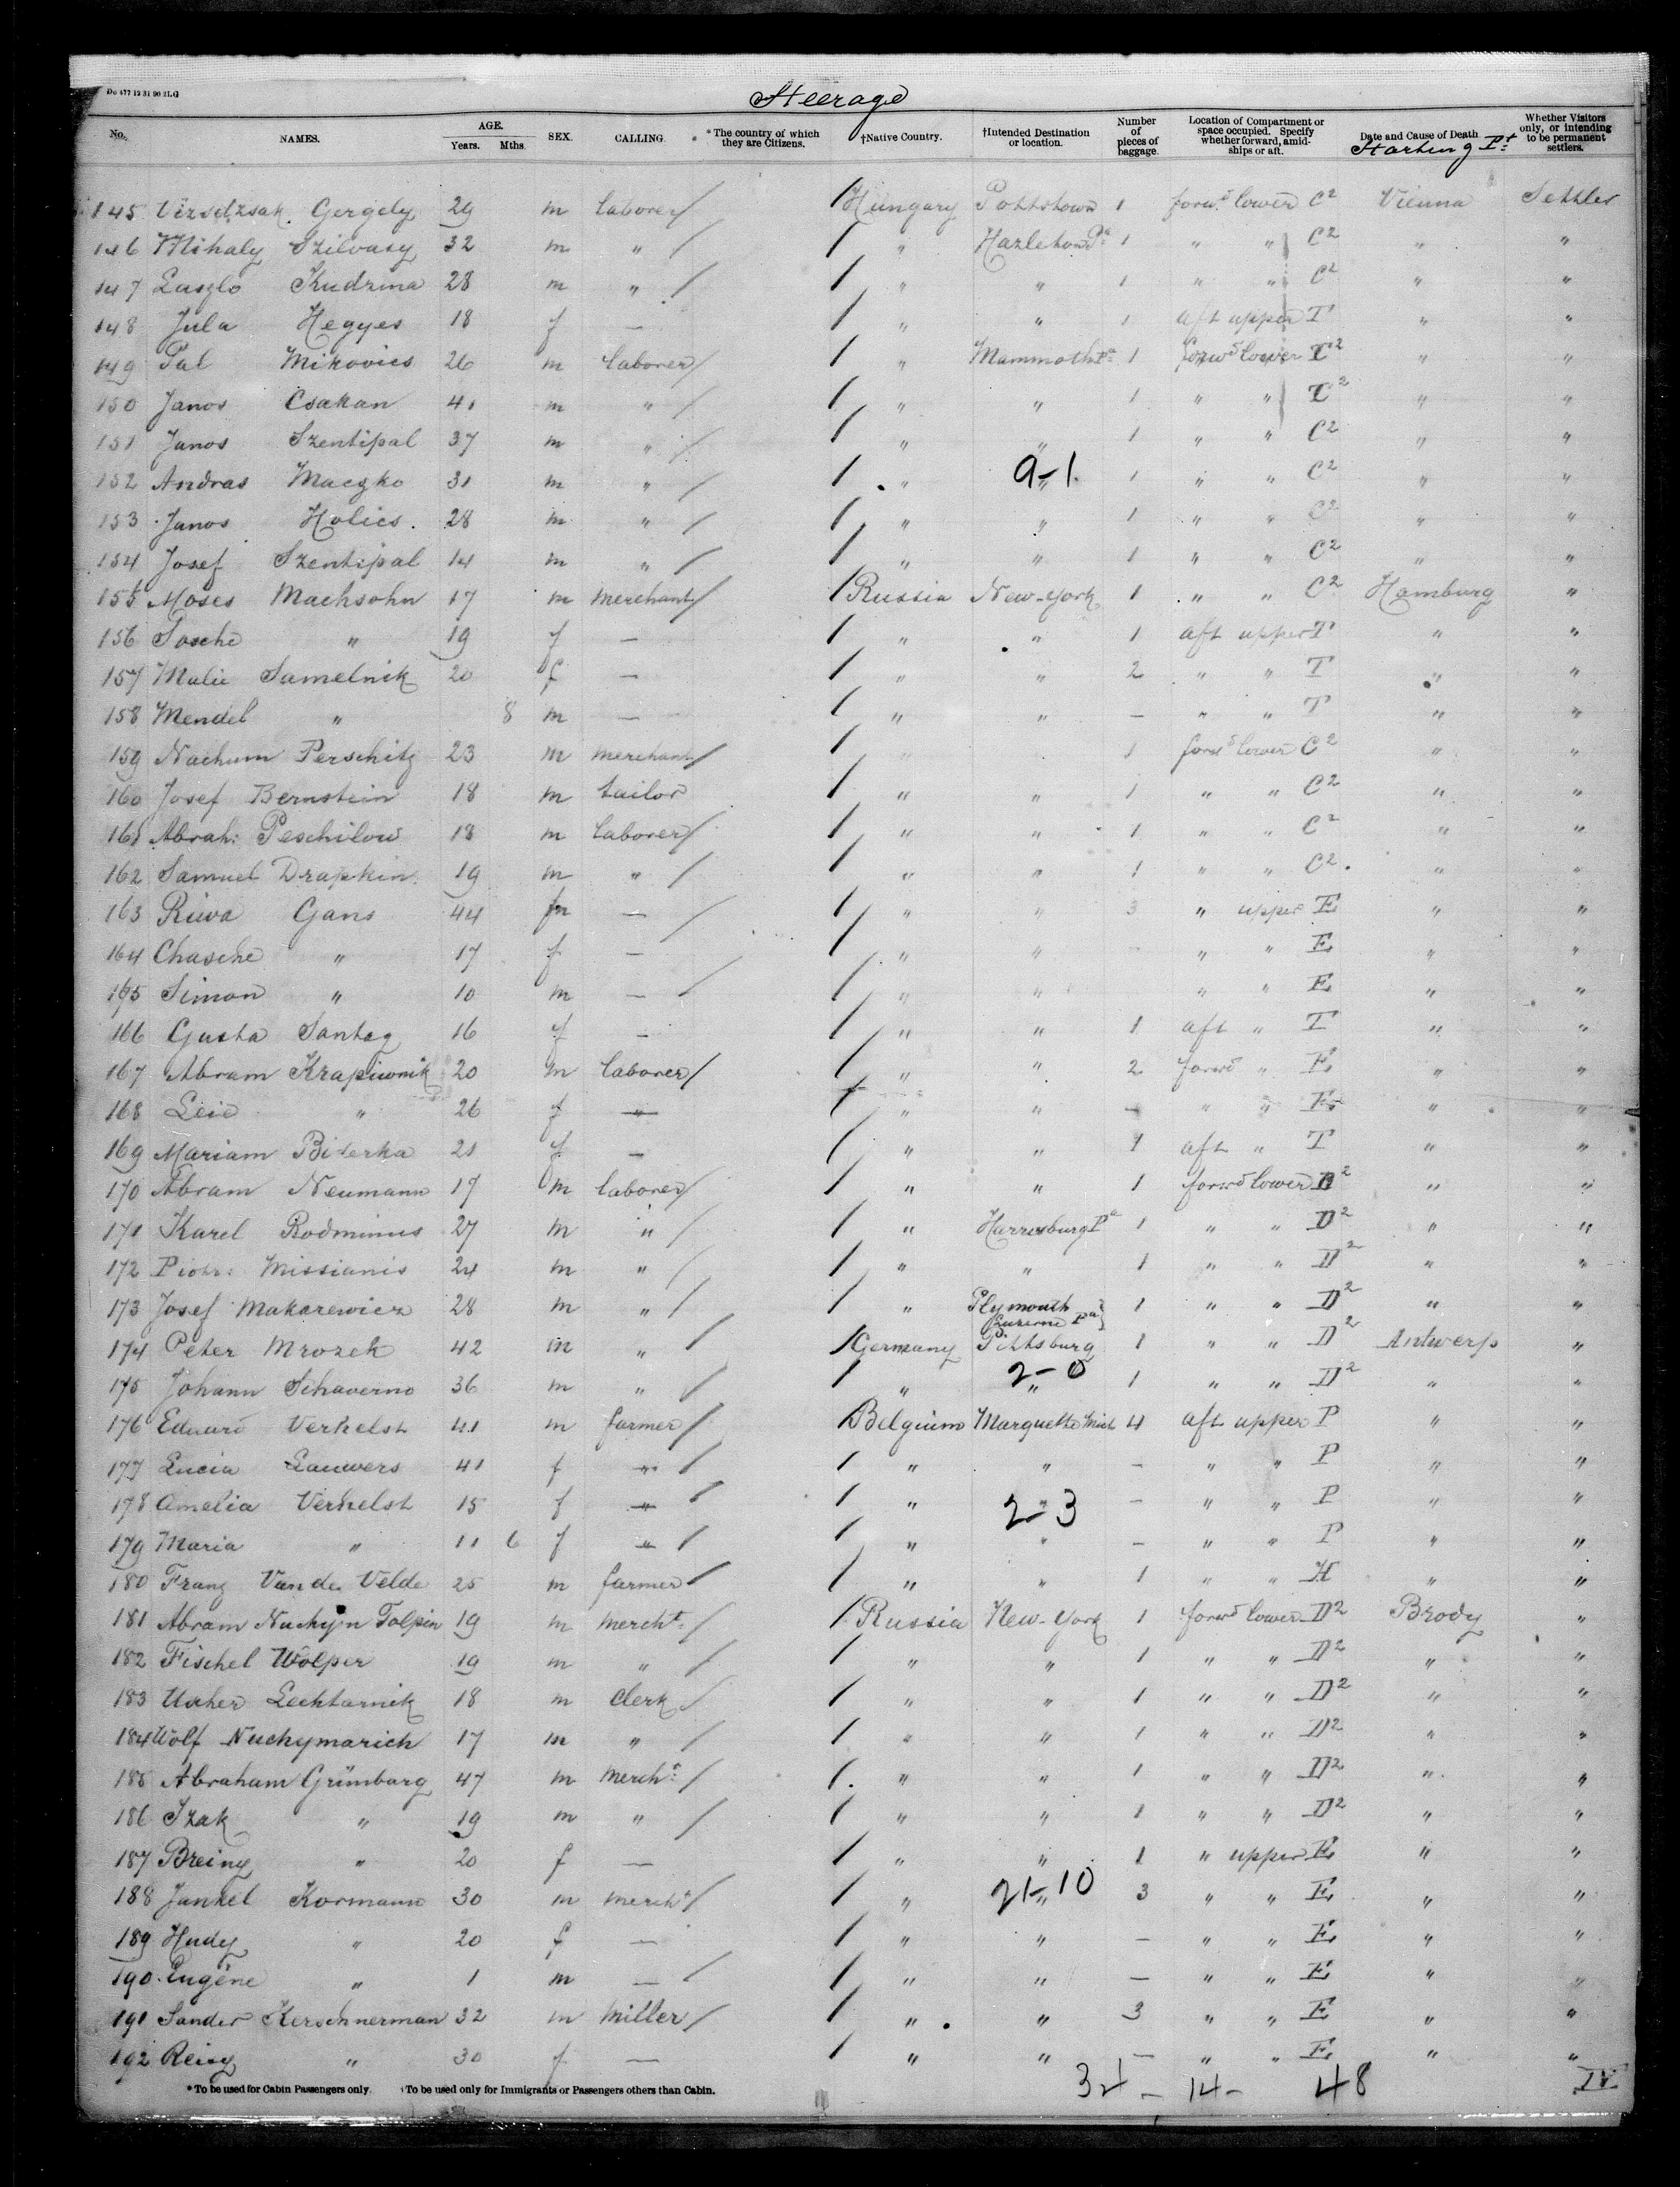 Do 477 12 31 90 2LG
Steerage
No. NAMES. AGE. Years. Mths. SEX. CALLING. * The country of which they are Citizens. †Native Country. †Intended Destination or location. Number of pieces of baggage. Location of Compartment or space occupied. Specify whether forward, amidships or aft. Date and Cause of Death Whether Visitors only, or intending to be permanent settlers.
Starting Pt
145 Gergely 29 m laborer / / Hungary Pottstown 1 forwd lower C2 Vienna Settler
146 Mihaly Szilvasy 32 m " / / " Hazleton Pa 1 " " C2 " "
147 Laszlo Kudzma 28 m " / / " " 1 " " C2 " "
148 Jula Hegyes 18 f — / " " 1 aft upper T " "
149 Pal Mikovics 26 m laborer / / " Mammoth Pa 1 forwd lower C2 " "
150 Janos Csakan 41 m " / / " " 1 " " C2 " "
151 Janos Szentipal 37 m " / / " " 1 " " C2 " "
152 Andras Maczko 31 m " / / " " 9-1. 1 " " C2 " "
153 Janos Holics. 28 m " / / " " 1 " " C2 " "
154 Josef Szentipal 14 m " / / " " 1 " " C2 " "
155 Moses Machsohn 17 m merchant / / Russia New-York 1 " " C2 Hamburg "
156 Sosche " 19 f — / " " 1 aft upper T " "
157 Malie Samelnik 20 f — / " " 2 " " T " "
158 Mendel " 8 m — / " " — " " T " "
159 Nachum Perschitz 23 m merchant / / 1 forwd lower C2 " "
160 Josef Bernstein 18 m tailor / " " 1 " " C2 " "
161 Abrah: Peschilow 18 m laborer / / " " 1 " " C2 " "
162 Samuel Drapkin. 19 m " / / " " 1 " " C2. " "
163 Riwa Gans 44 f — / / " " 3 " upper E " "
164 Chasche " 17 f — / " " - " " E " "
165 Simon " 10 m — / / " " " " E " "
166 Gusta Santag 16 f — / " " 1 aft " T " "
167 Abram Krapiwnik 20 m laborer / / " " 2 forwd " E " "
168 Leie " 26 f — / " " — " " E " "
169 Mariam Biterka 21 f — / " " 1 aft " T " "
170 Abram Neumann 17 m laborer / / " " 1 forwd lower D2 " "
171 Karel Rodminus 27 m " / / " Harrisburg Pa 1 " " D2 " "
172 Piotr: Missianis 24 m " / / " " 1 " " D2 " "
173 Josef Makarewicz 28 m " / / " Plymouth Luzerne Pa } 1 " " D2 " "
174 Peter Mrozek 42 m " / / Germany Pittsburg 1 " " D2 Antwerp "
175 Johann Schaverno 36 m " / / " " 2-0 1 " " D2 " "
176 Eduard Verhelst 41 m farmer / / Belgium Marquette Mich 4 aft upper P " "
177 Lucia Lauwers 41 f — / / " " — " " P " "
178 Amelia Verhelst 15 f — / / " " 2-3 — " " P " "
179 Maria " 11 6 f — / / " " — " " P " "
180 Franz Van de Velde 25 m farmer / / " " 1 " " H " "
181 Abram Nuchym Tolpin 19 m mercht / / Russia New-York 1 forwd lower D2 Brody "
182 Fischel Wolper 19 m " / / " " 1 " " D2 " "
183 Uscher Lechtarnik 18 m clerk / / " " 1 " " D2 " "
184 Wolf Nuchymarich 17 m " / / " " 1 " " D2 " "
185 Abraham Grünbarg 47 m mercht / / " " 1 " " D2 " "
186 Izak " 19 m " / / " " 1 " " D2 " "
187 Breiny " 20 f — / " " 1 " upper E " "
188 Jankel Kormann 30 m mercht / / " " 21-10 3 " " E " "
189 Hudy " 20 f — / " " — " " E " "
190 Eugène " 1 m — / / " " — " " E " "
191 Sander Kerschnerman 32 m miller / / " " 3 " " E " "
192 Reisy " 30 f — / " " — " " E " "
*To be used for Cabin Passengers only. †To be used only for Immigrants or Passengers others than Cabin.
34 - 14 - 48 IV